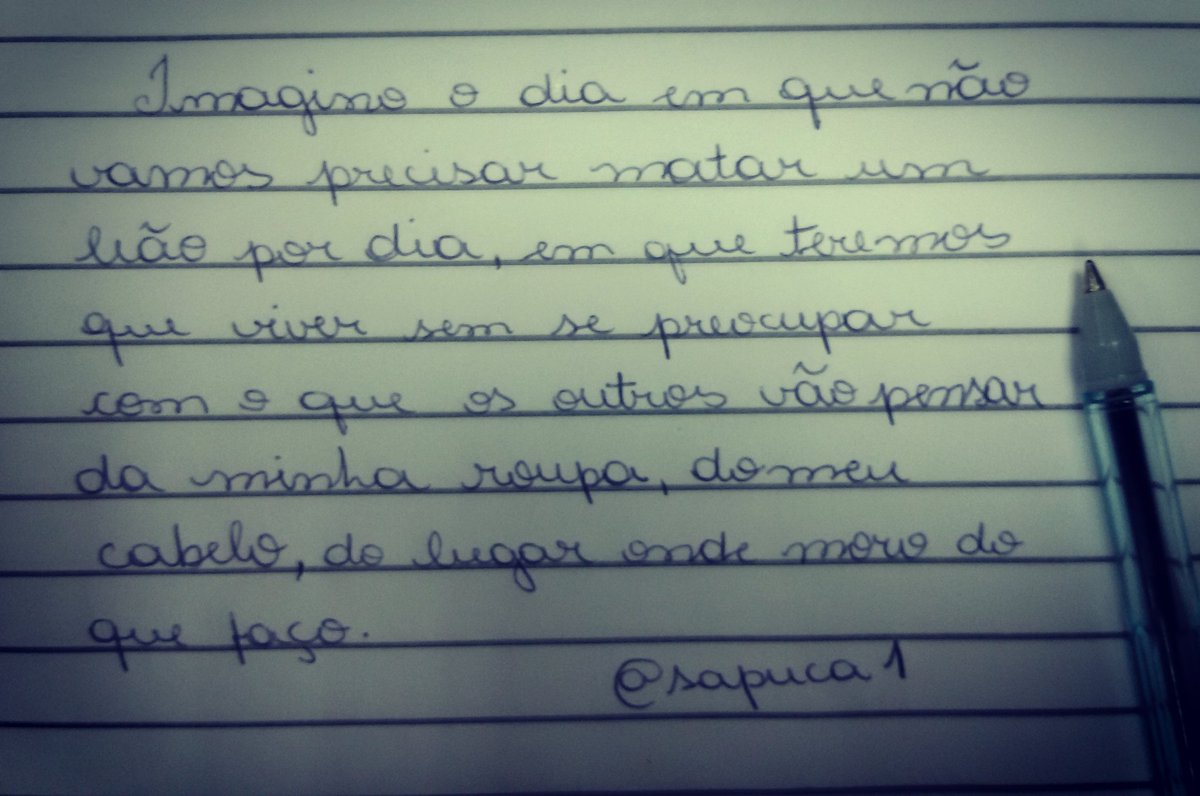 Imagino o dia em que não
vamos precisar matar um
lião por dia, em que teremos
que viver sem se preocupar
com o que os outros vão pensar
da minha roupa, do meu
cabelo, do lugar onde moro do
que faço.
@sapuca1